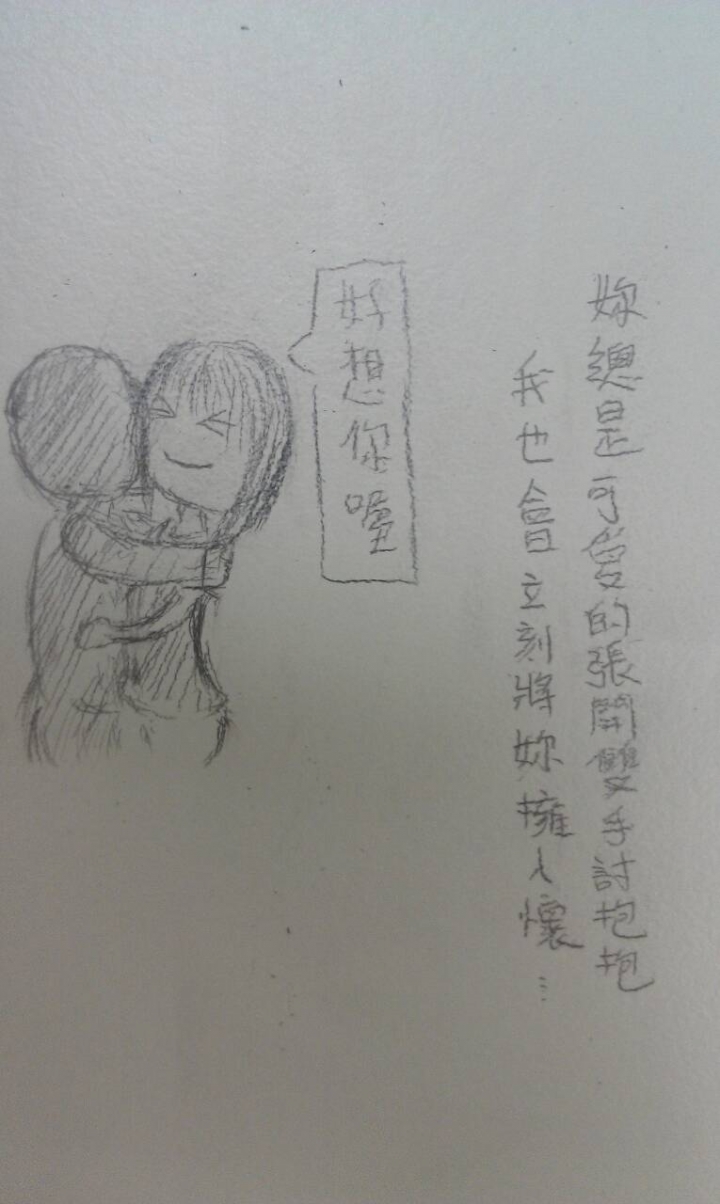 妳總是可愛的張開雙手討抱抱
我也會立刻將妳擁入懷…
好想你喔